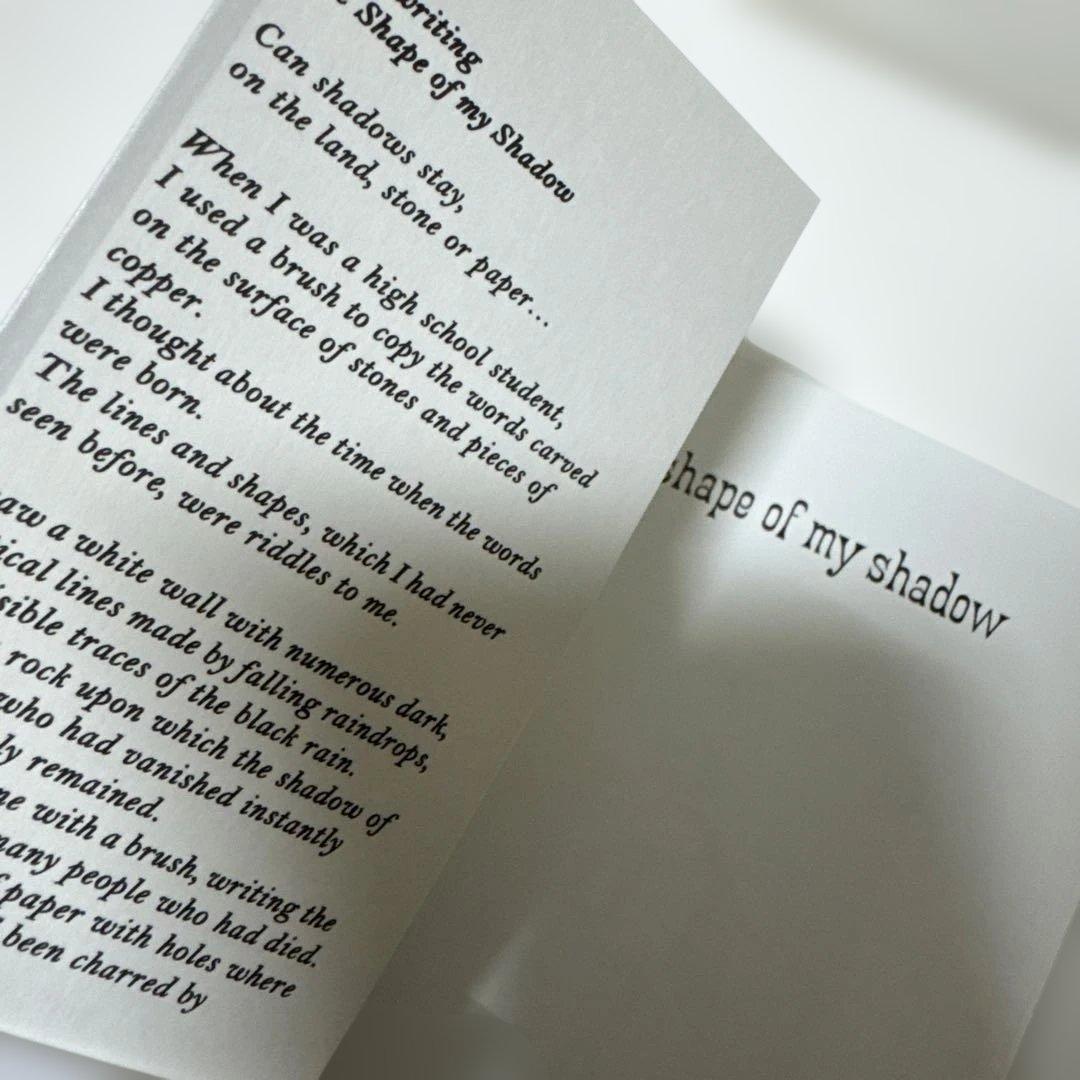 writing
Shape of my Shadow
Can shadows stay,
on the land, stone or paper...
When I was a high school student,
I used a brush to copy the words carved
on the surface of stones and pieces of
copper.
I thought about the time when the words
were born.
The lines and shapes, which I had never
seen before, were riddles to me.
a white wall with numerous dark,
lines made by falling raindrops,
traces of the black rain.
rock upon which the shadow of
who had vanished instantly
remained.
with a brush, writing the
many people who had died.
paper with holes where
been charred by
shape of my shadow